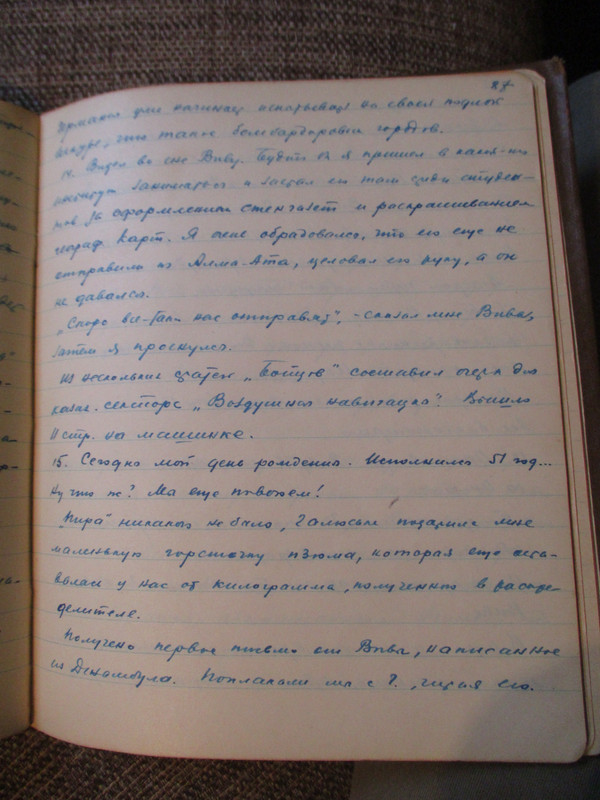 87
Германия уже начинает испытывать на своей подлой
шкуре, что такое бомбардировки городов.
14. Видел во сне Виву. Будто бы я пришел в какой-то
институт заниматься и застал его там среди студен-
тов за оформлением стенгазет и раскрашиванием
географ. карт. Я очень обрадовался, что его еще не
отправили из Алма-Ата, целовал его руку, а он
не давался.
„Скоро все-таки нас отправят", - сказал мне Вива,
затем я проснулся.
Из нескольких статей „Бойцов" составил очерк для
казах. сектора „Воздушная навигация". Вышло
11 стр. на машинке.
15. Сегодня мой день рождения. Исполнился 51 год...
Ну что ж? Мы еще поживем!
„Пира" никакого не было, Галюська подарила мне
маленькую горсточку изюма, которая еще оста-
валась у нас от килограмма, полученного в распре-
делителе.
Получено первое письмо от Вивы, написанное
из Джамбула. Поплакали мы с Г., читая его.